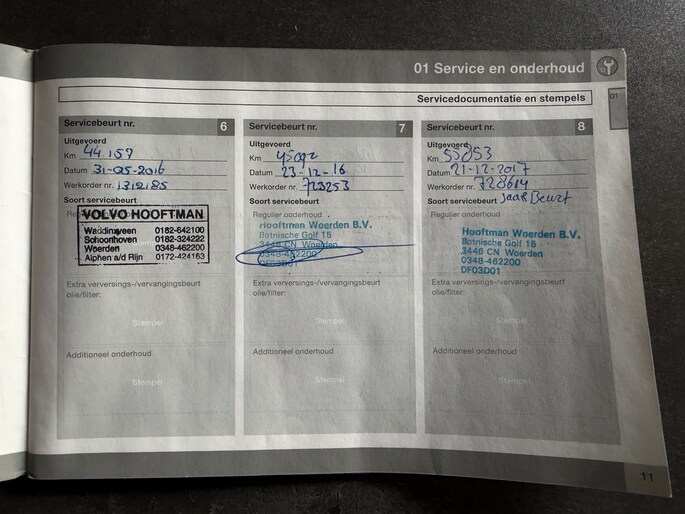 01 Service en onderhoud
01
Servicedocumentatie en stempels
Servicebeurt nr. 6
Uitgevoerd
Km 44.157
Datum 31-05-2016
Werkorder nr. 1312185
Soort servicebeurt
VOLVO HOOFTMAN
Waddinxveen 0182-642100
Schoonhoven 0182-324222
Woerden 0348-462200
Alphen a/d Rijn 0172-424163
Extra verversings-/vervangingsbeurt
olie/filter:
Stempel
Additioneel onderhoud
Stempel
Servicebeurt nr. 7
Uitgevoerd
Km
Datum 23-12-16
Werkorder nr. 723253
Soort servicebeurt
Regulier onderhoud
Hooftman Woerden B.V.
Botnische Golf 15
3446 CN Woerden
0348-462200
DF03D01
Extra verversings-/vervangingsbeurt
olie/filter:
Stempel
Additioneel onderhoud
Stempel
Servicebeurt nr. 8
Uitgevoerd
Km 55853
Datum 21-12-2017
Werkorder nr. 728614
Soort servicebeurt Jaar Beurt
Regulier onderhoud
Hooftman Woerden B.V.
Botnische Golf 15
3446 CN Woerden
0348-462200
DF03D01
Extra verversings-/vervangingsbeurt
olie/filter:
Stempel
Additioneel onderhoud
Stempel
11